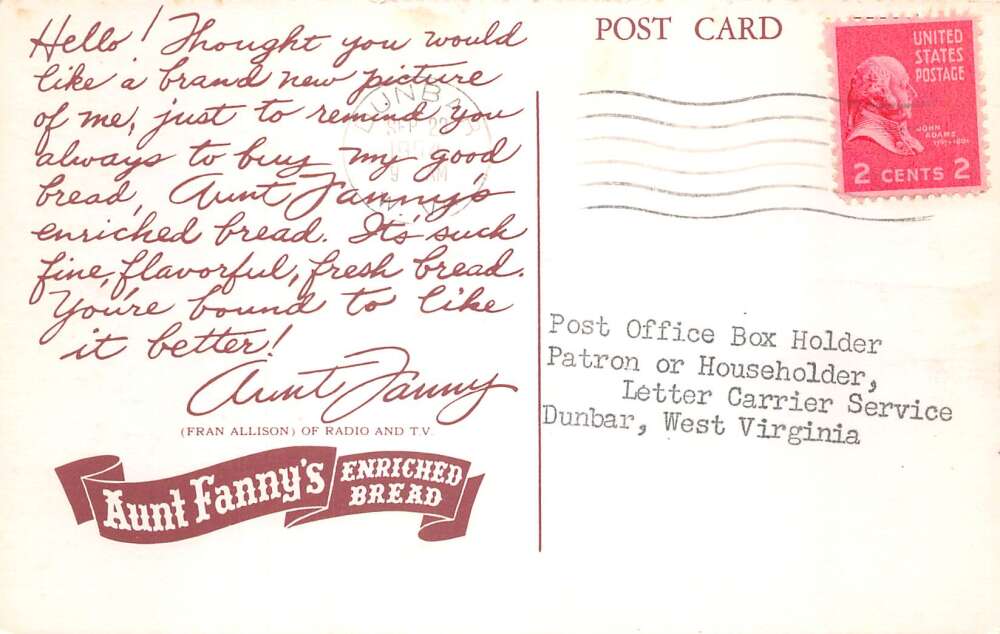 Hello! Thought you would
like a brand new picture
of me, just to remind you
always to buy my good
bread, Aunt Fanny's
enriched bread. It's such
fine, flavorful, fresh bread.
You're bound to like
it better!
Aunt Fanny
(FRAN ALLISON) OF RADIO AND T.V.
Aunt Fanny's
ENRICHED
BREAD
POST CARD
DUNBAR
SEP 22
AM
UNITED
STATES
POSTAGE
JOHN
ADAMS
2 CENTS 2
Post Office Box Holder
Patron or Householder,
Letter Carrier Service
Dunbar, West Virginia